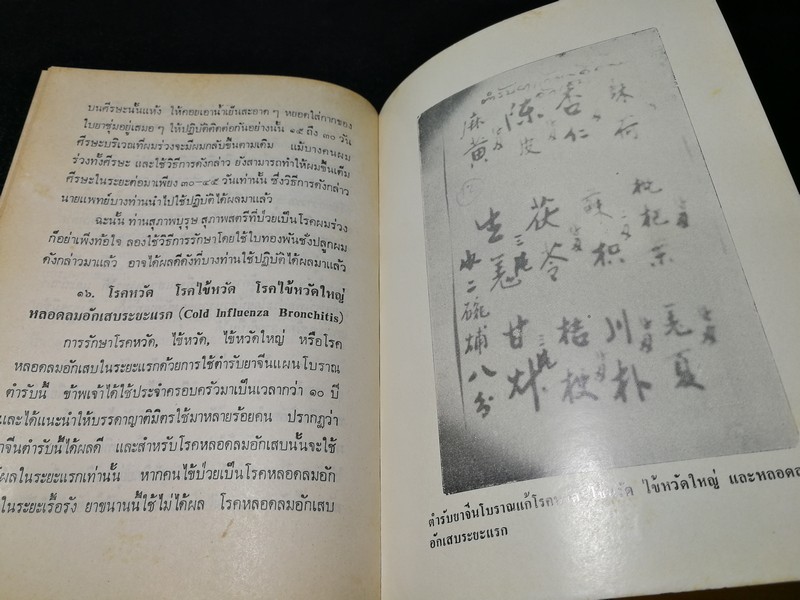 บนศีรษะนั้นแห้ง ให้คอยเอาน้ำเย็นสะอาด ๆ หยอดใส่กากของ
ใบยาชุ่มอยู่เสมอ ๆ ให้ปฏิบัติติดต่อกันอย่างนั้น ๑๕ ถึง ๓๐ วัน
ศีรษะบริเวณที่ผมร่วงจะมีผมกลับขึ้นตามเดิม แม้บางคนผม
ร่วงทั้งศีรษะ และใช้วิธีการดังกล่าว ยังสามารถทำให้ผมขึ้นเต็ม
ศีรษะในระยะต่อมาเพียง ๓๐–๔๕ วันเท่านั้น ซึ่งวิธีการดังกล่าว
นายแพทย์บางท่านนำไปใช้ปฏิบัติได้ผลมาแล้ว
ฉะนั้น ท่านสุภาพบุรุษ สุภาพสตรีที่ป่วยเป็นโรคผมร่วง
ก็อย่าเพิ่งท้อใจ ลองใช้วิธีการรักษาโดยใช้ใบทองพันชั่งปลูกผม
ดังกล่าวมาแล้ว อาจได้ผลดีดังที่บางท่านใช้ปฏิบัติได้ผลมาแล้ว
๑๖. โรคหวัด โรคไข้หวัด โรคไข้หวัดใหญ่
หลอดลมอักเสบระยะแรก (Cold Influenza Bronchitis)
การรักษาโรคหวัด, ไข้หวัด, ไข้หวัดใหญ่ หรือโรค
หลอดลมอักเสบในระยะแรกด้วยการใช้ตำรับยาจีนแผนโบราณ
ตำรับนี้ ข้าพเจ้าได้ใช้ประจำครอบครัวมาเป็นเวลากว่า ๑๐ ปี
และได้แนะนำให้บรรดาญาติมิตรใช้มาหลายร้อยคน ปรากฏว่า
ยาจีนตำรับนี้ได้ผลดี และสำหรับโรคหลอดลมอักเสบนั้นจะใช้
ได้ผลในระยะแรกเท่านั้น หากคนไข้ป่วยเป็นโรคหลอดลมอัก
ในระยะเรื้อรัง ยาขนานนี้ใช้ไม่ได้ผล โรคหลอดลมอักเสบ
荷
杏仁
陈皮
麻黄
枇杷
枳
茯苓
生
夏
川朴
桔梗
甘
水二碗 八分
ตำรับยาจีนโบราณแก้โรคหวัด ไข้หวัด ไข้หวัดใหญ่ และหลอดล
อักเสบระยะแรก